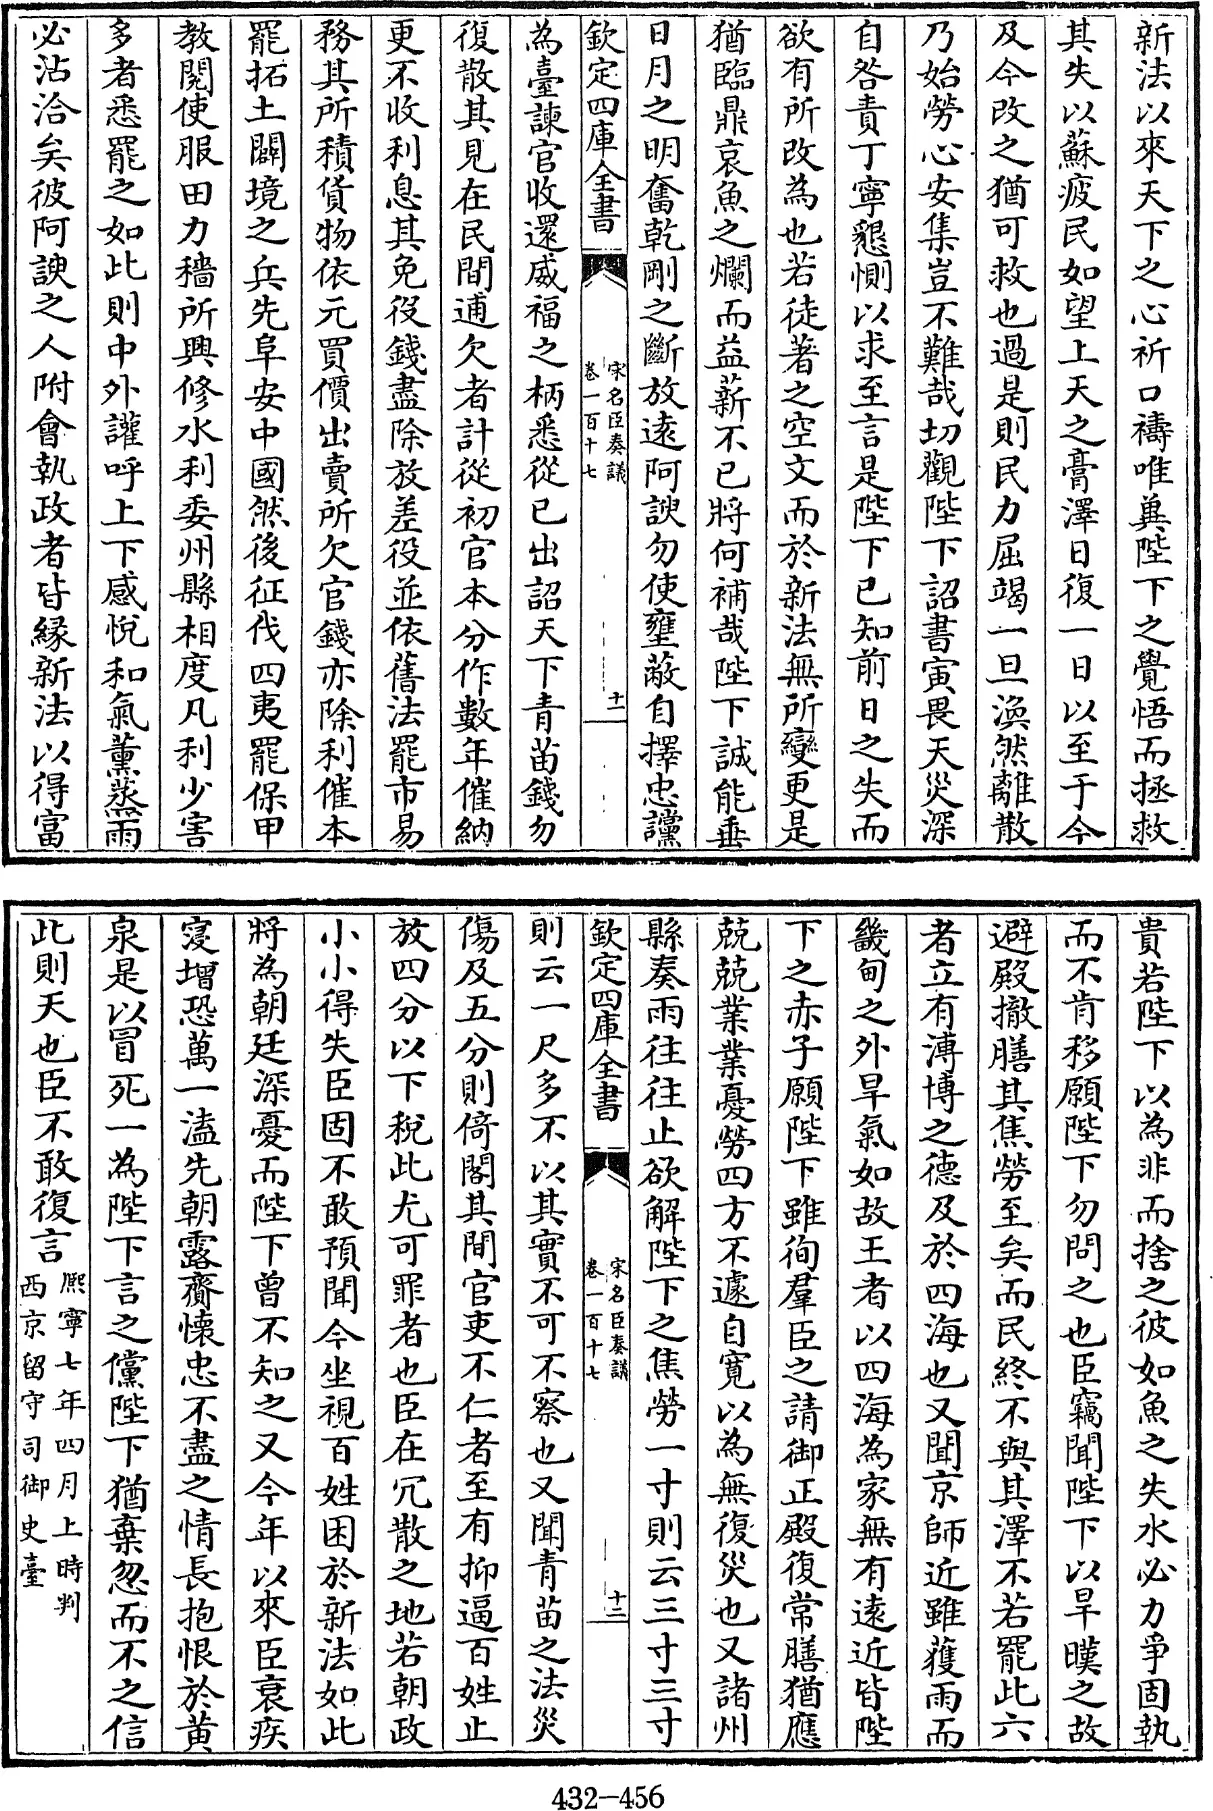 新法以來天下之心祈口禱唯冀陛下之覺悟而拯救
其失以蘇疲民如望上天之膏澤日復一日以至于今
及今改之猶可救也過是則民力屈竭一旦渙然離散
乃始勞心安集豈不難哉切觀陛下詔書寅畏天災深
自咎責丁寧懇惻以求至言是陛下已知前日之失而
欲有所改為也若徒著之空文而於新法無所變更是
猶臨鼎哀魚之爛而益薪不已將何補哉陛下誠能垂
日月之明奮乾剛之斷放遠阿諛勿使壅蔽自擇忠讜
欽定四庫全書
宋名臣奏議
卷一百十七
十一
為臺諫官收還威福之柄悉從已出詔天下青苗錢勿
復散其見在民間逋欠者計從初官本分作數年催納
更不收利息其免役錢盡除放差役並依舊法罷市易
務其所積貨物依元買價出賣所欠官錢亦除利催本
罷拓土闢境之兵先阜安中國然後征伐四夷罷保甲
教閱使服田力穡所興修水利委州縣相度凡利少害
多者悉罷之如此則中外讙呼上下感悅和氣薰蒸雨
必沾洽矣彼阿諛之人附會執政者皆緣新法以得富
貴若陛下以為非而捨之彼如魚之失水必力爭固執
而不肯移願陛下勿問之也臣竊聞陛下以旱暵之故
避殿撤膳其焦勞至矣而民終不與其澤不若罷此六
者立有溥博之德及於四海也又聞京師近雖獲雨而
畿甸之外旱氣如故王者以四海為家無有遠近皆陛
下之赤子願陛下雖徇羣臣之請御正殿復常膳猶應
兢兢業業憂勞四方不遽自寬以為無復災也又諸州
縣奏雨往往止欲解陛下之焦勞一寸則云三寸三寸
欽定四庫全書
宋名臣奏議
卷一百十七
十二
則云一尺多不以其實不可不察也又聞青苗之法災
傷及五分則倚閣其間官吏不仁者至有抑逼百姓止
放四分以下稅此尤可罪者也臣在冗散之地若朝政
小小得失臣固不敢預聞今坐視百姓困於新法如此
將為朝廷深憂而陛下曾不知之又今年以來臣衰疾
寖增恐萬一溘先朝露齎懷忠不盡之情長抱恨於黃
泉是以冒死一為陛下言之儻陛下猶棄忽而不之信
此則天也臣不敢復言
熈寧七年四月上時判
西京留守司御史臺
432-456